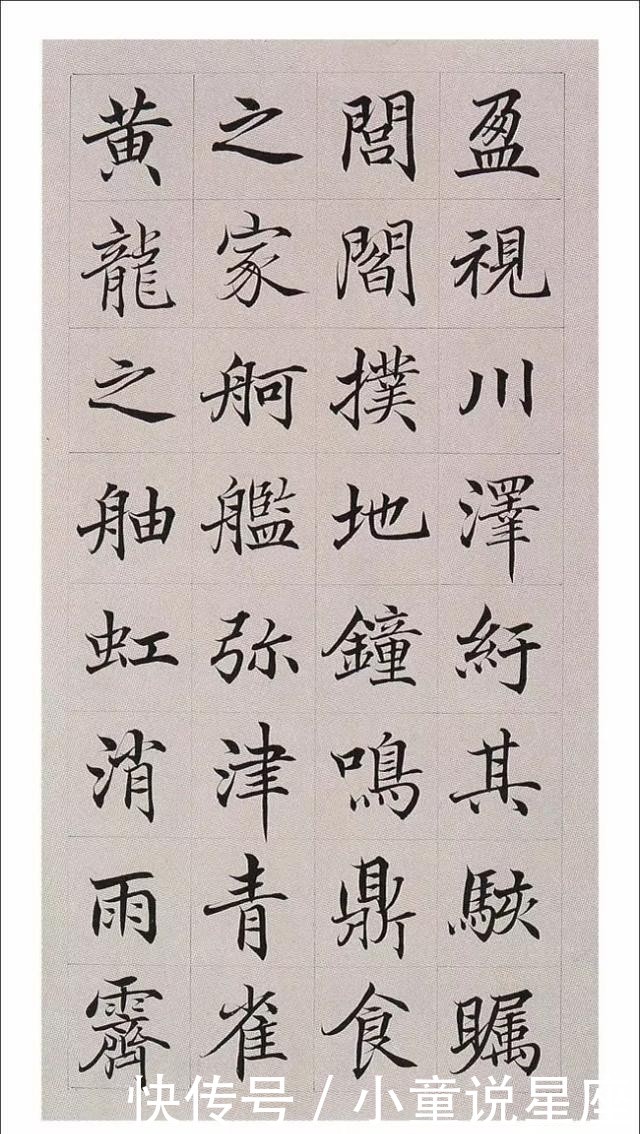 盈視川澤紆其駭瞩
閭閻撲地鐘鳴鼎食
之家舸艦弥津青雀
黄龍之舳虹消雨霽
快传号 / 小童说星座